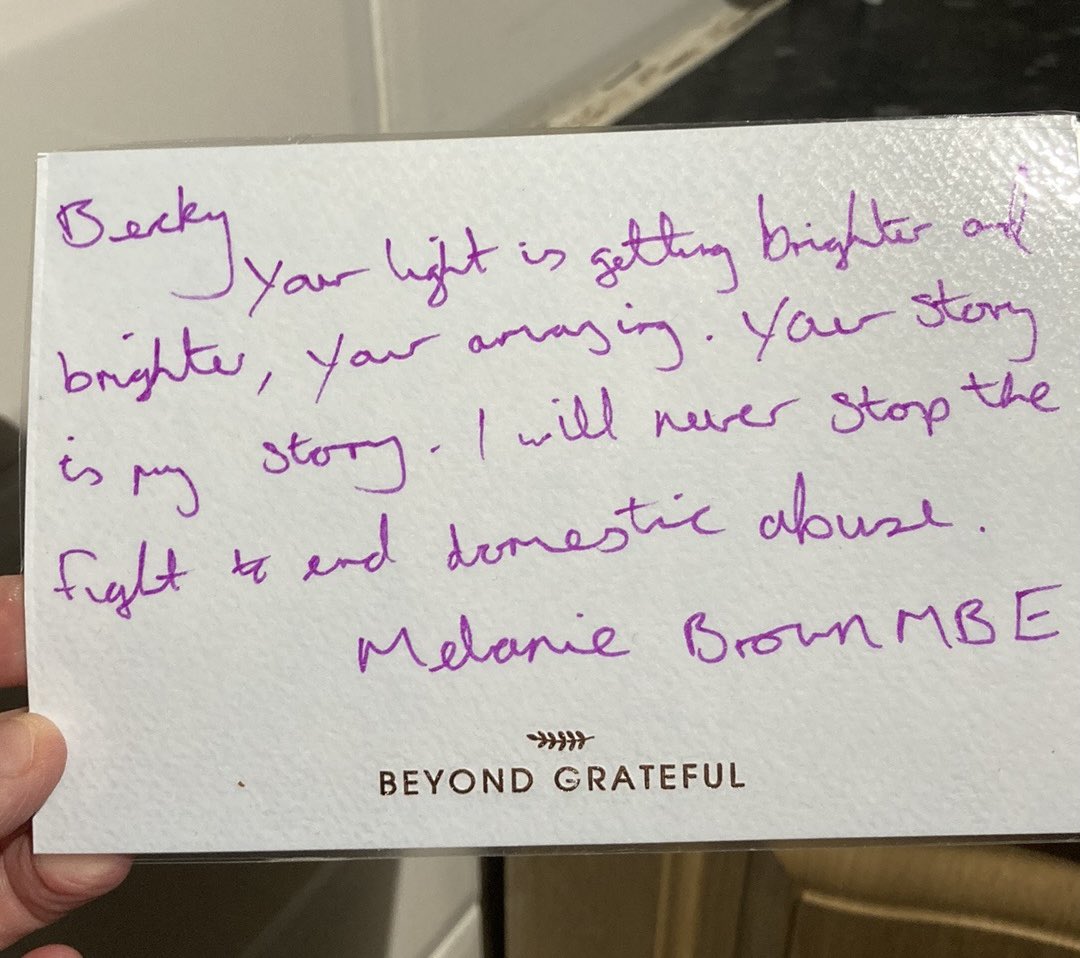 Becky
Your light is getting brighter and
brighter, your amazing. Your story
is my story. I will never stop the
fight to end domestic abuse.
Melanie Brown MBE
BEYOND GRATEFUL